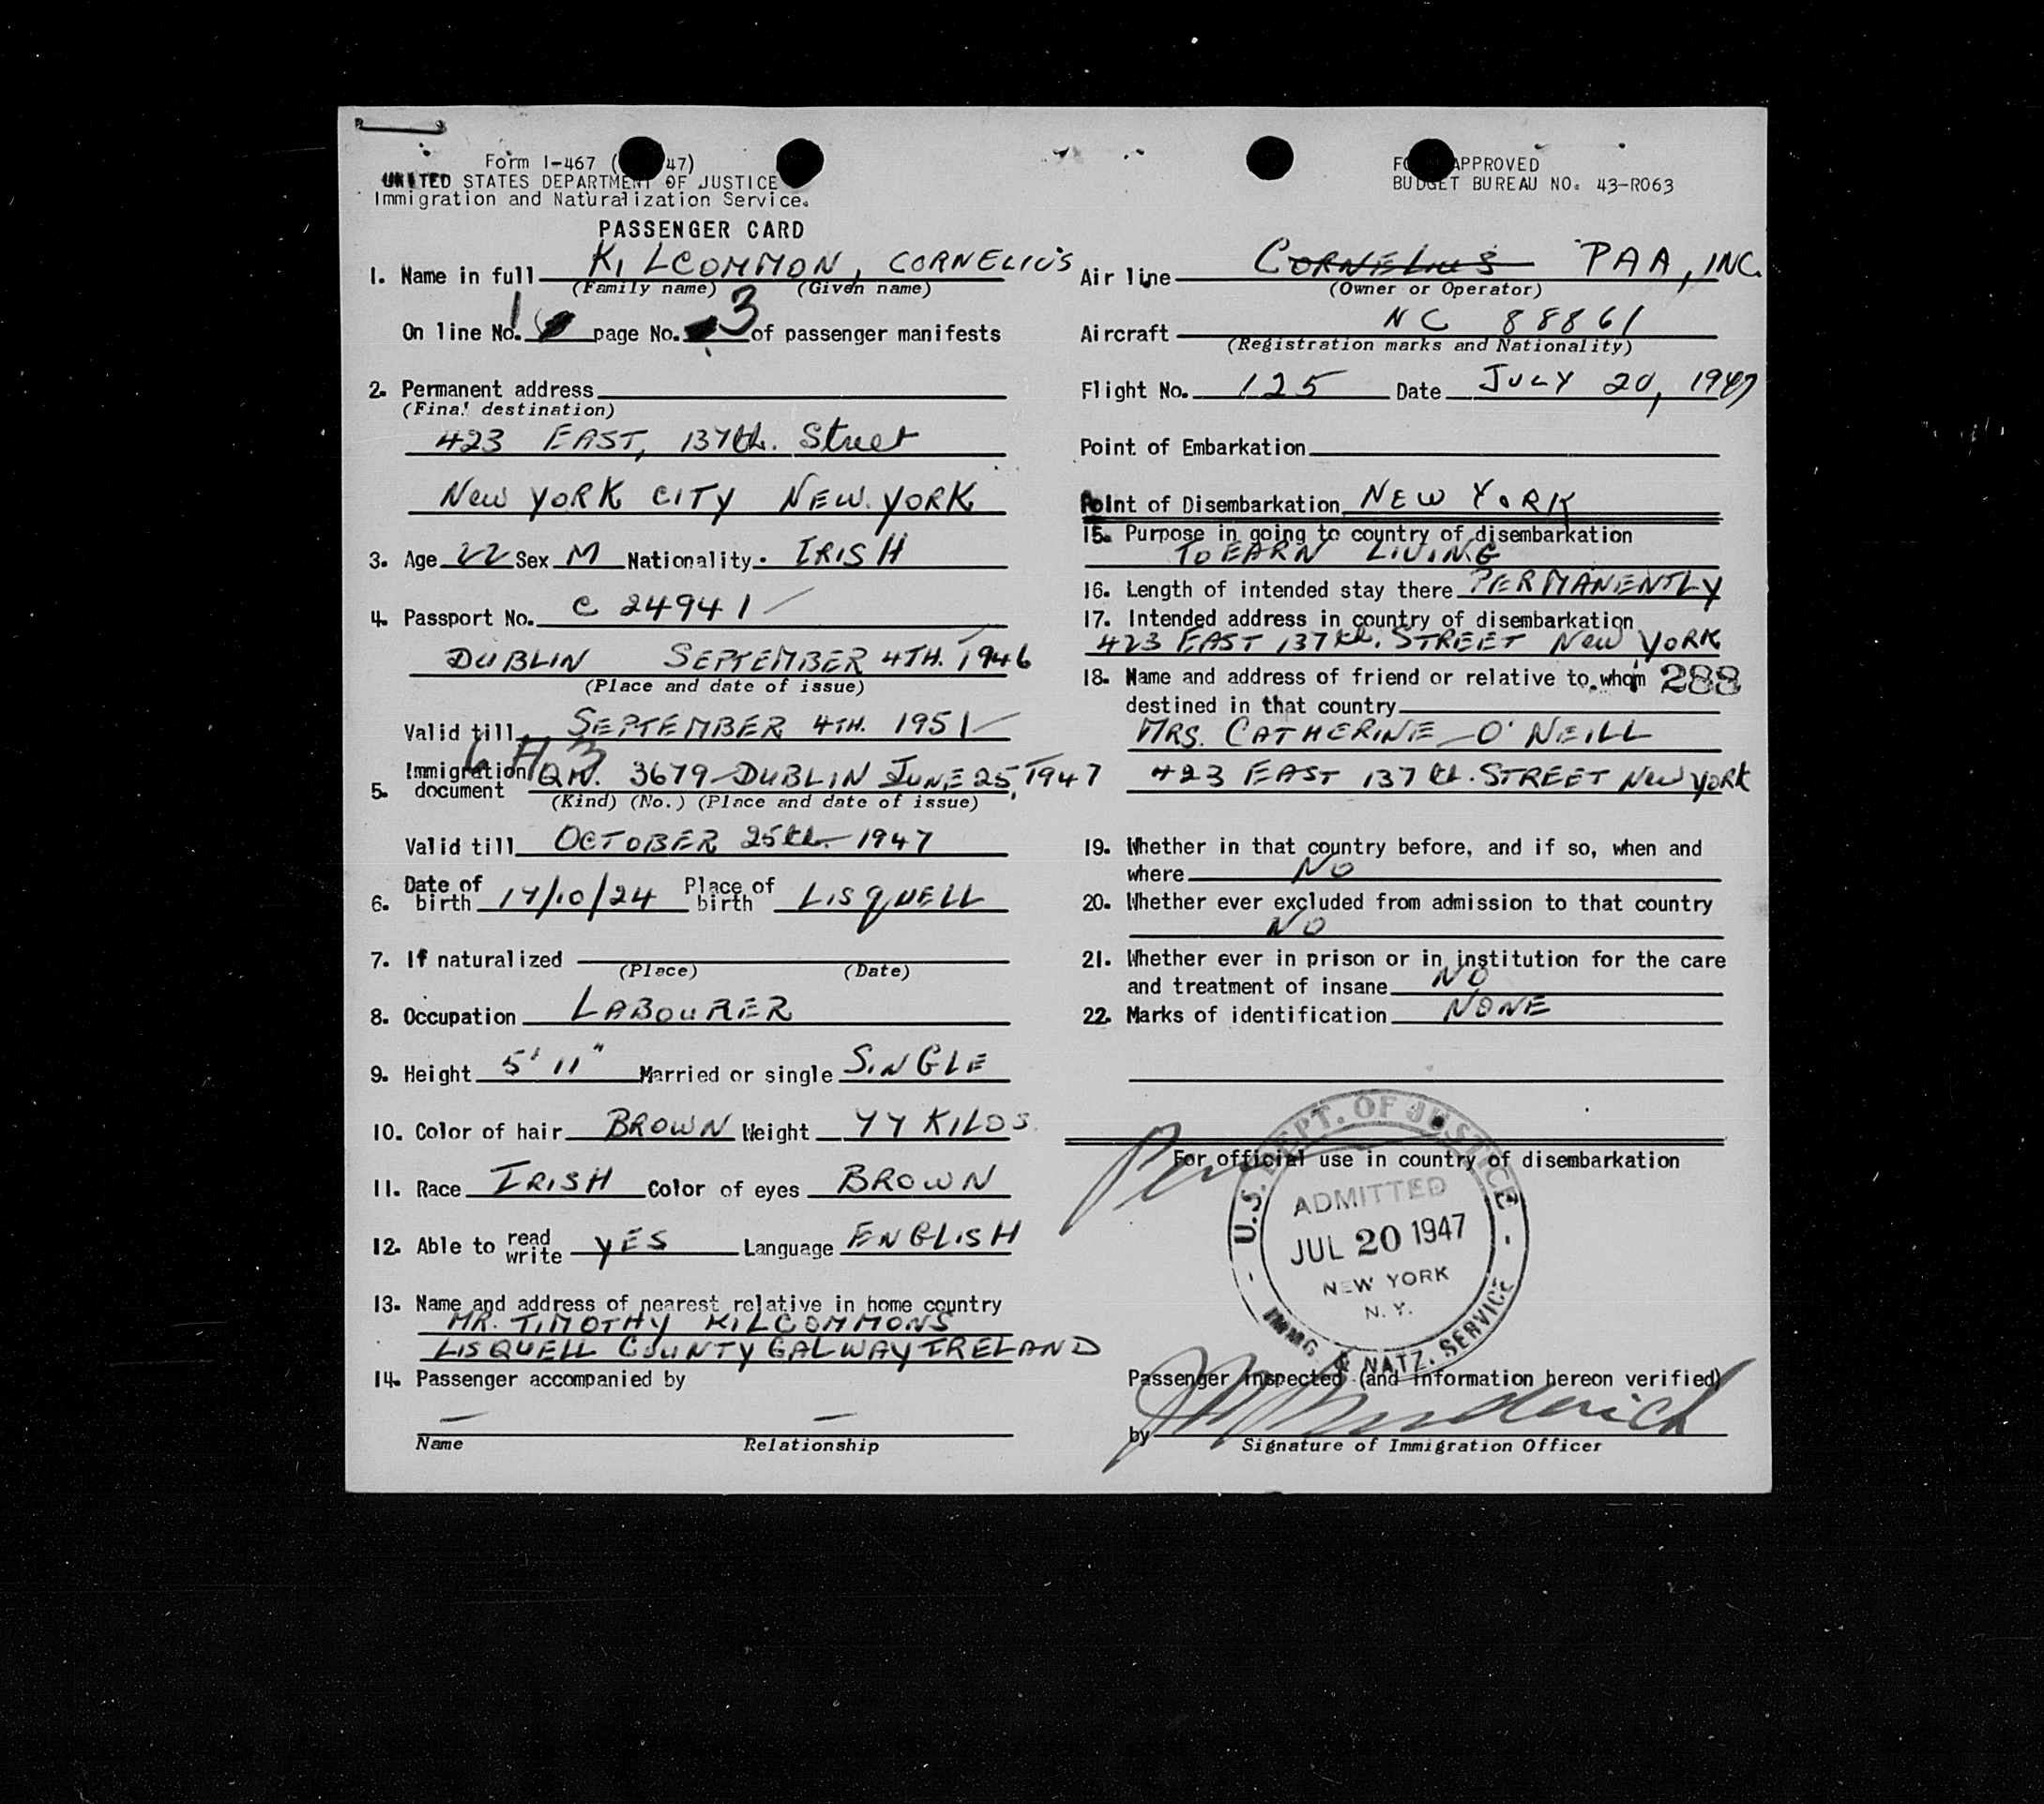 Form I-467 ( 47)
UNITED STATES DEPARTMENT OF JUSTICE
Immigration and Naturalization Service.
PASSENGER CARD
1. Name in full KILCOMMON, CORNELIUS
(Family name) (Given name)
On line No. 1 page No. 3 of passenger manifests
2. Permanent address
(Final destination)
423 EAST, 137th. Street
New YORK CITY NEW YORK
3. Age 22 Sex M Nationality. IRISH
4. Passport No. C 24941
DUBLIN SEPTEMBER 4TH. 1946
(Place and date of issue)
Valid till SEPTEMBER 4TH. 1951
5. Immigration document QIV. 3679 DUBLIN JUNE 25, 1947
(Kind) (No.) (Place and date of issue)
Valid till OCTOBER 25th 1947
6. Date of birth 17/10/24 Place of birth LISQUELL
7. If naturalized
(Place) (Date)
8. Occupation LABOURER
9. Height 5' 11" Married or single SINGLE
10. Color of hair BROWN Weight 77 KILOS
11. Race IRISH Color of eyes BROWN
12. Able to read write YES Language ENGLISH
13. Name and address of nearest relative in home country
MR. TIMOTHY KILCOMMONS
LISQUELL COUNTY GALWAY IRELAND
14. Passenger accompanied by
— —
Name Relationship
FO APPROVED
BUDGET BUREAU NO. 43-R063
Air line CORNELIUS PAA, INC.
(Owner or Operator)
Aircraft NC 88861
(Registration marks and Nationality)
Flight No. 125 Date JULY 20, 1947
Point of Embarkation
Point of Disembarkation NEW YORK
15. Purpose in going to country of disembarkation
TO EARN LIVING
16. Length of intended stay there PERMANENTLY
17. Intended address in country of disembarkation
423 EAST 137th. STREET New YORK
18. Name and address of friend or relative to whom 288
destined in that country
MRS. CATHERINE O'NEILL
423 EAST 137th. STREET New York
19. Whether in that country before, and if so, when and
where NO
20. Whether ever excluded from admission to that country
NO
21. Whether ever in prison or in institution for the care
and treatment of insane NO
22. Marks of identification NONE
For official use in country of disembarkation
U.S. DEPT. OF JUSTICE
ADMITTED
JUL 20 1947
NEW YORK
N. Y.
IMMG. & NATZ. SERVICE
Passenger Inspected (and information hereon verified)
by
Signature of Immigration Officer